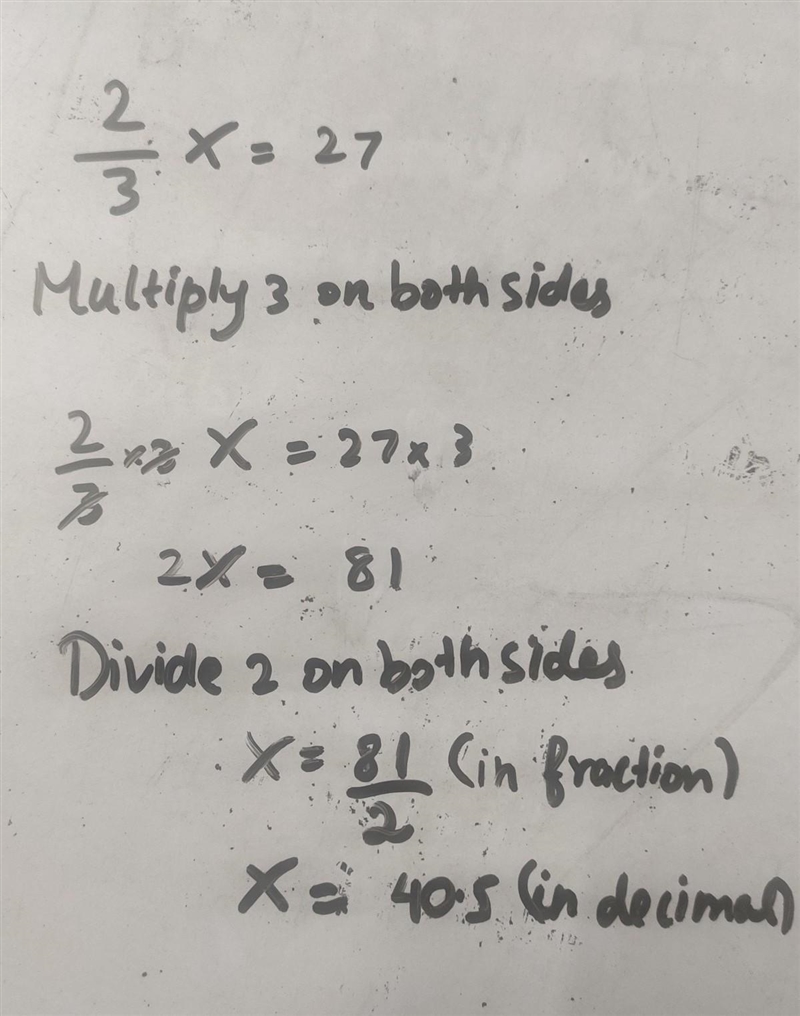 2/3 X = 27
Multiply 3 on both sides
2/3 × 3 X = 27 × 3
2X = 81
Divide 2 on both sides
X = 81/2 (in fraction)
X = 40.5 (in decimal)